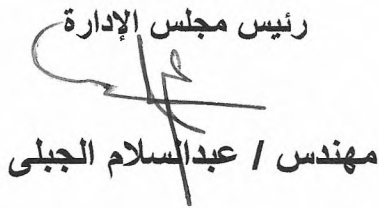 رئيس مجلس الإدارة
مهندس / عبدالسلام الجبلى